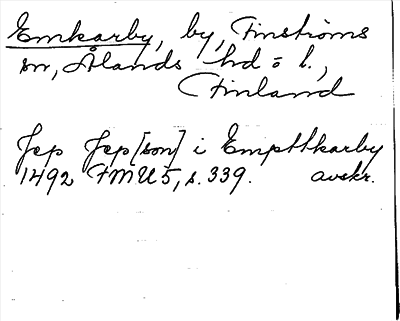 Emkarby, by, Finströms
sn, Ålands hd o l.,
Finland
Jep Jep[son] i Emptthkarby
1492 FMU 5, s. 339. avskr.